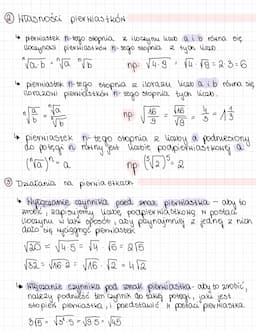 ② Własności pierwiastków
↳ pierwiastek n-tego stopnia z iloczynu liczb a i b równa się
iloczynowi pierwiastków n-tego stopnia z tych liczb.
ⁿ√a·b = ⁿ√a · ⁿ√b np. √4·9 = √4 · √9 = 2·3 = 6
↳ pierwiastek n-tego stopnia z ilorazu liczb a i b równa się
ilorazowi pierwiastków n-tego stopnia tych liczb.
ⁿ√a/b = ⁿ√a/ⁿ√b np. √16/9 = √16/√9 = 4/3 = 1 1/3
↳ pierwiastek n-tego stopnia z liczby a podniesiony
do potęgi n równy jest liczbie podpierwiastkowej a.
(ⁿ√a)ⁿ = a np (⁵√2)⁵ = 2
③ Działania na pierwiastkach
↳ Wyłączanie czynnika przed znak pierwiastka - aby to
zrobić, zapisujemy liczbę podpierwiastkową w postaci
iloczynu w taki sposób, aby przynajmniej z jednej z nich
dało się wyciągnąć pierwiastek.
√20 = √4·5 = √4 · √5 = 2√5
√32 = √16·2 = √16 · √2 = 4√2
↳ Włączanie czynnika pod znak pierwiastka - aby to zrobić,
należy podnieść ten czynnik do takiej potęgi, jaki jest
stopień pierwiastka, i przedstawić w postaci pierwiastka.
3√5 = √3²·5 = √9·5 = √45